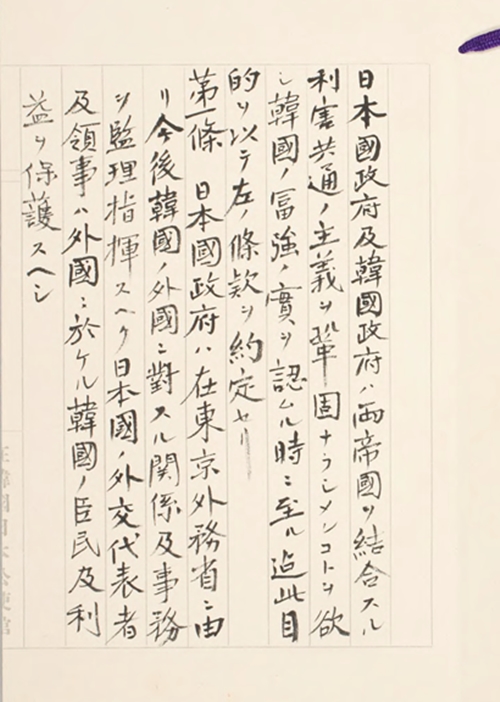 日本國政府及韓國政府ハ両帝國ヲ結合スル
利害共通ノ主義ヲ鞏固ナラシメンコトヲ欲
シ韓國ノ冨強ノ實ヲ認ムル時ニ至ル迠此目
的ヲ以テ左ノ條款ヲ約定セリ
第一條　日本國政府ハ在東京外務省ニ由
リ今後韓國ノ外國ニ對スル関係及事務
ヲ監理指揮スヘク日本國ノ外交代表者
及領事ハ外國ニ於ケル韓國ノ臣民及利
益ヲ保護スヘシ